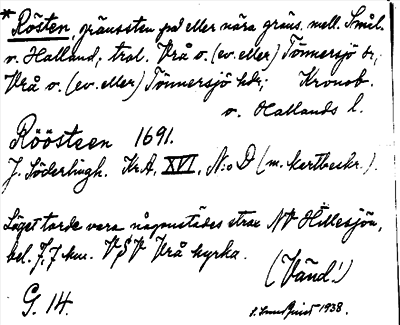 * Rösten, gränssten på eller nära gräns. mell. Smål.
o. Halland, trol. Vrå o. (ev. eller) Tönnersjö sr;
Vrå o. (ev. eller) Tönnersjö hdr; Kronob.
o. Hallands l.
Röösteen 1691.
J. Söderlingh. Kr.A. XVI, N:o D (m. kartbeskr.).
Läget torde vara någonstädes strax NV Hillesjön,
bel. 7,7 km. VSV Vrå kyrka.
(Vänd!)
G. 14. 1938.